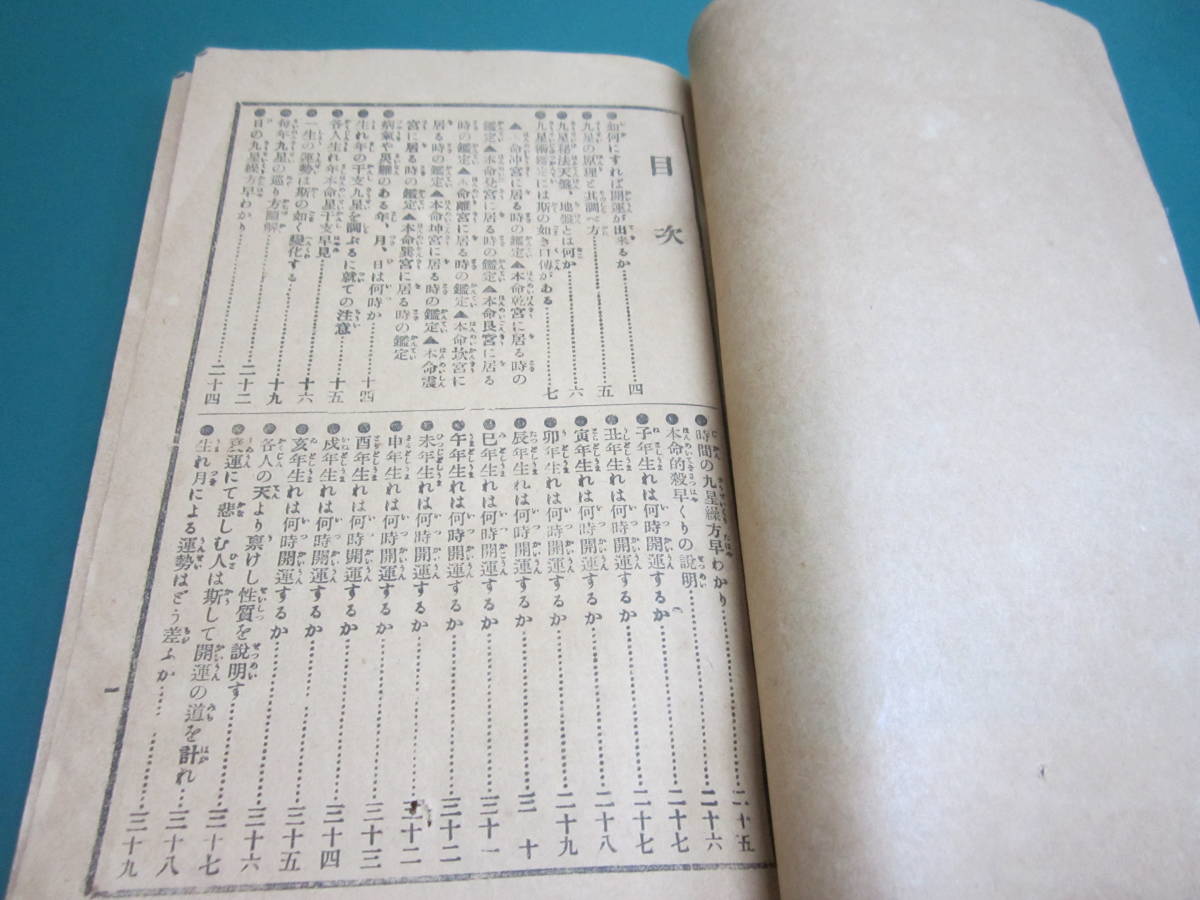 目次
●如何にすれば開運が出来るか…………四
●九星の原理と其調べ方…………五
●九星秘法天盤、地盤とは何か…………六
●九星術鑑定には斯の如き口傳がある…………七
▲本命中宮に居る時の鑑定▲本命乾宮に居る時の
鑑定▲本命兌宮に居る時の鑑定▲本命艮宮に居る
時の鑑定▲本命離宮に居る時の鑑定▲本命坎宮に
居る時の鑑定▲本命坤宮に居る時の鑑定▲本命震
宮に居る時の鑑定▲本命巽宮に居る時の鑑定
●病氣や災難のある年、月、日は何時か…………十四
●生れ年の干支九星を調ぶるに就ての注意…………十五
●各人生れ年本命星干支早見…………十六
●一生の運勢は斯の如く變化する…………十九
●毎年九星の巡り方圖解…………二十二
●日の九星繰方早わかり…………二十四
●時間の九星繰方早わかり…………二十五
●本命的殺早くりの說明…………二十六
●子年生れは何時開運するか…………二十七
●丑年生れは何時開運するか…………二十七
●寅年生れは何時開運するか…………二十八
●卯年生れは何時開運するか…………二十九
●辰年生れは何時開運するか…………三十
●巳年生れは何時開運するか…………三十一
●午年生れは何時開運するか…………三十二
●未年生れは何時開運するか…………三十二
●申年生れは何時開運するか…………三十三
●酉年生れは何時開運するか…………三十四
●戌年生れは何時開運するか…………三十五
●亥年生れは何時開運するか…………三十六
●各人の天より稟けし性質を說明す…………三十七
●惡運にて悲しむ人は斯して開運の道を計れ…………三十八
●生れ月による運勢はどう差ふか…………三十九
一